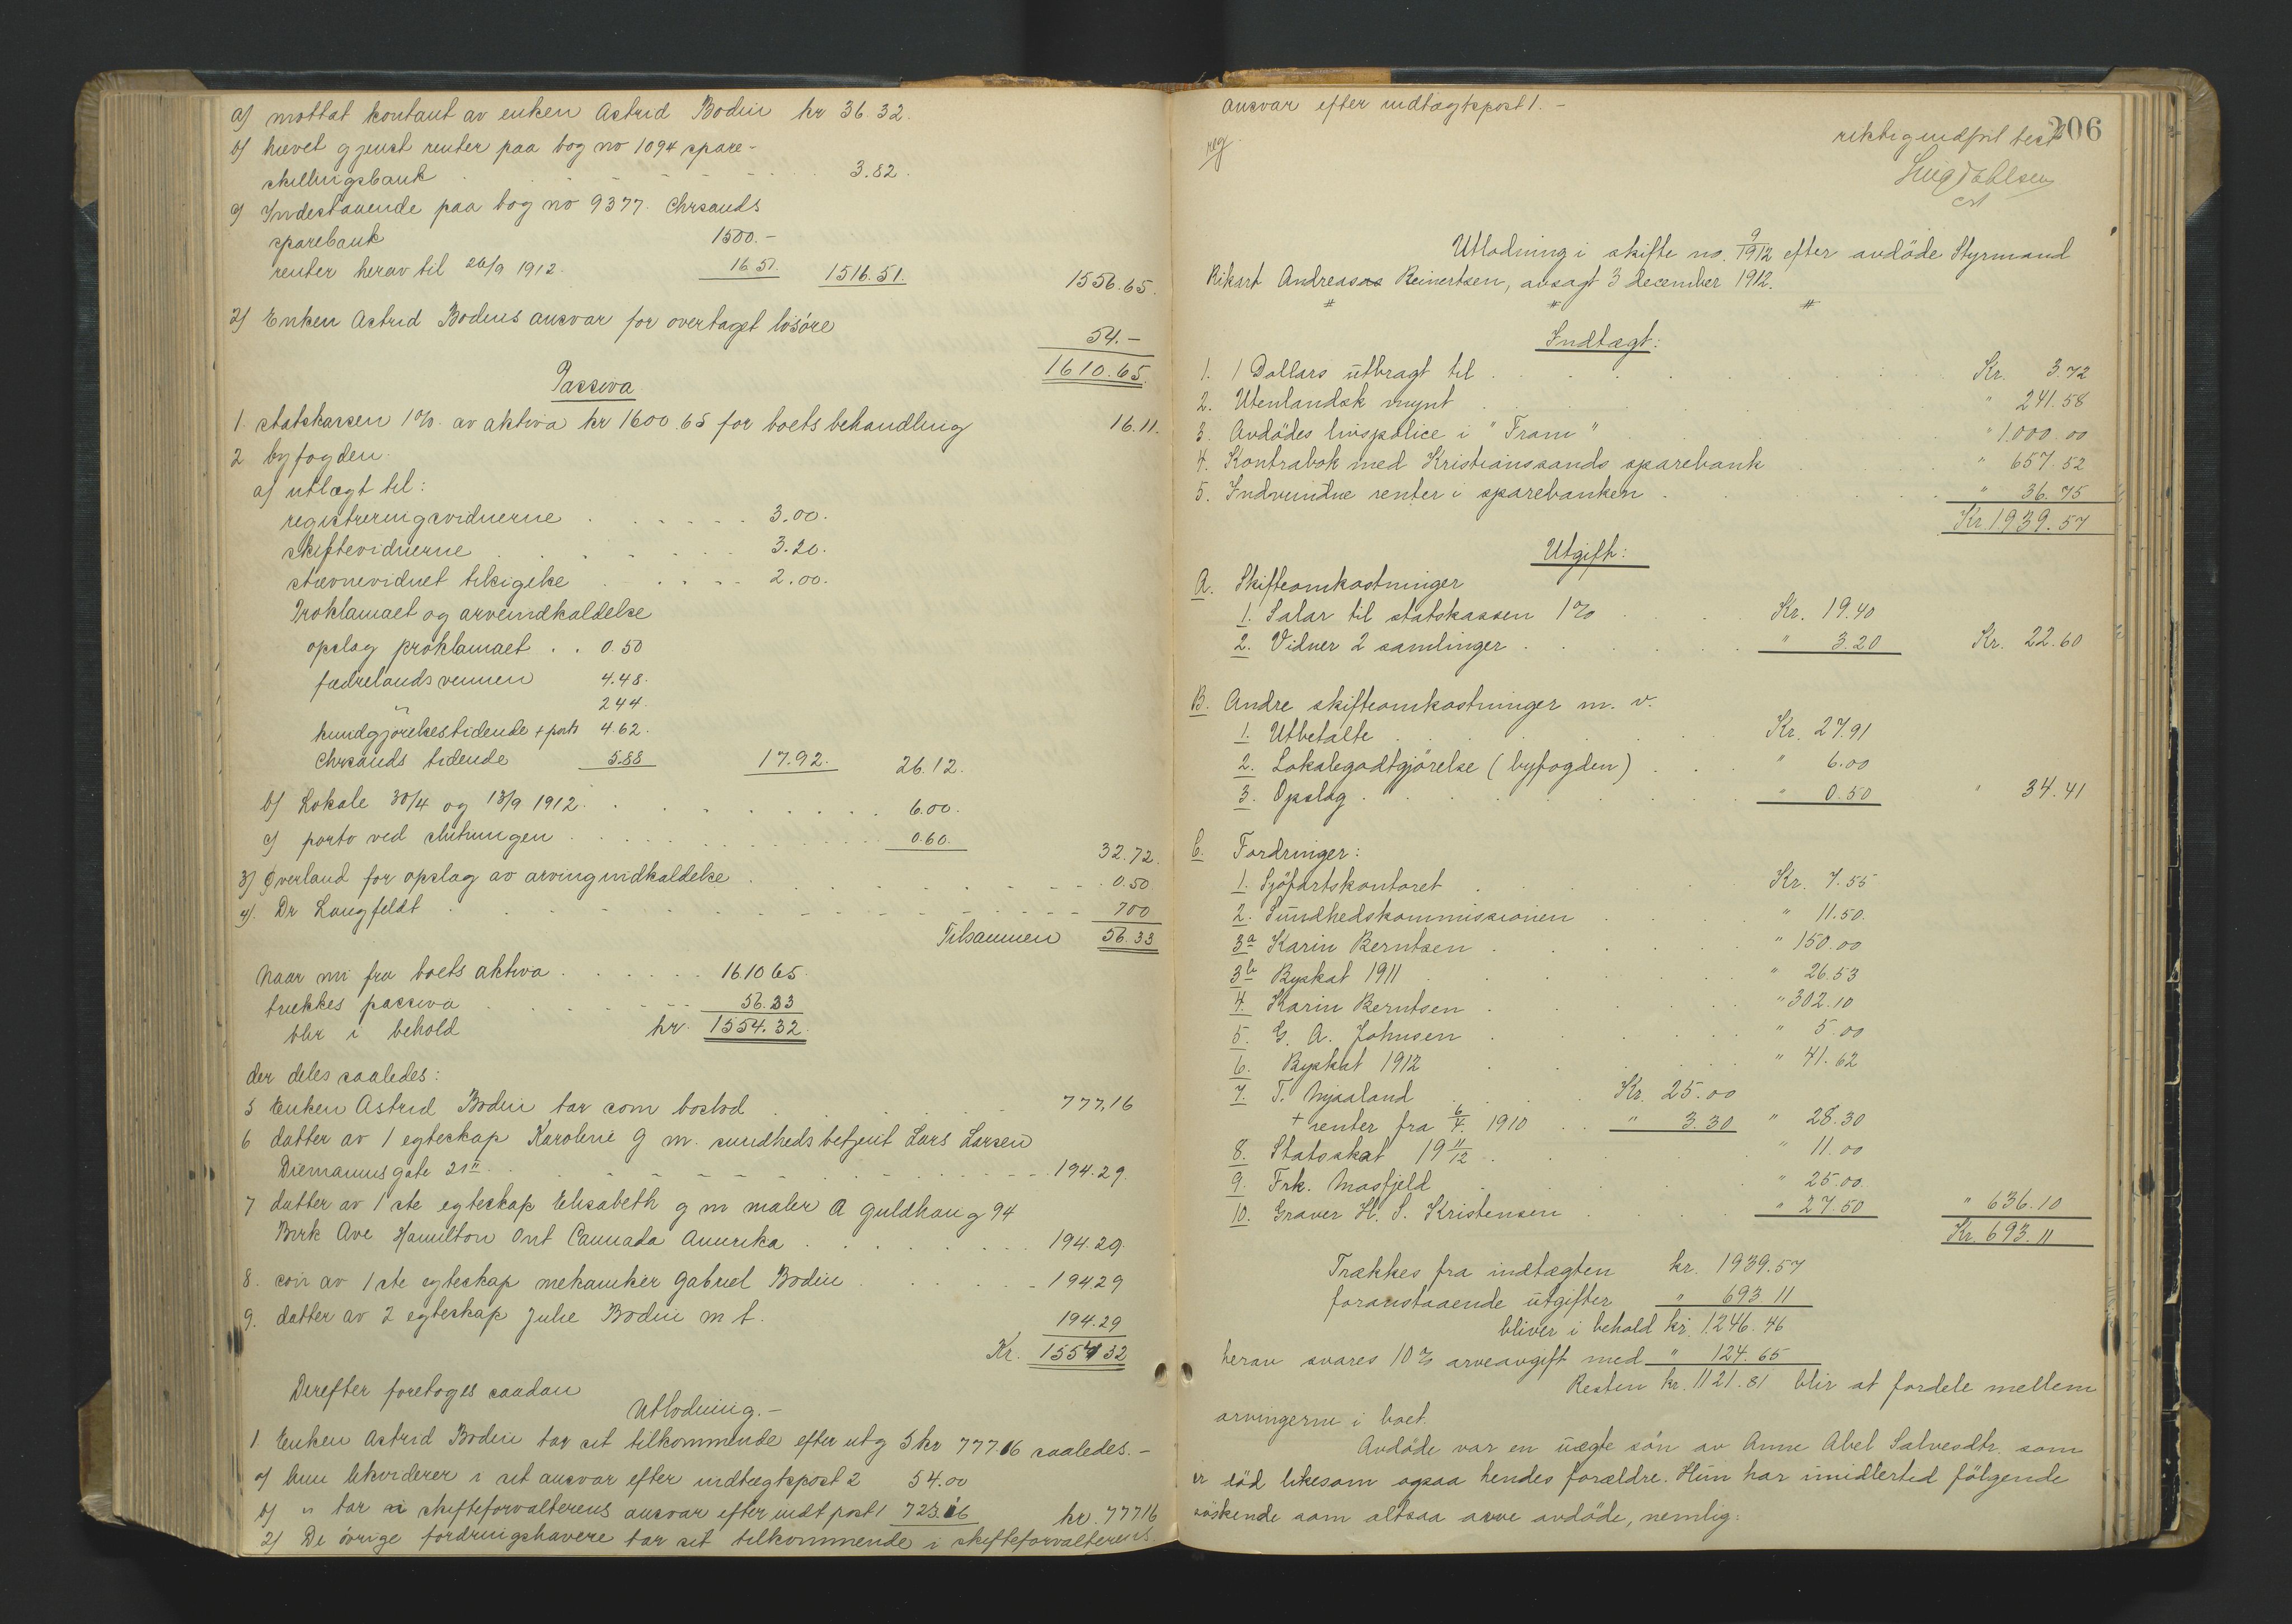 a) mottat kontant av enken Astrid Bodin kr 36.32.
b) hævet gjenst renter paa bog no 1094 spare-
skillingsbank 3.82.
c) Indestaaende paa bog no 9377. Chrsands
sparebank 1500.-
renter herav til 26/9 1912. 16.51. 1516.51. 1556.65.
2) Enken Astrid Bodins ansvar for overtaget løsöre 54.-
1610.65.
Passiva
1. statskassen 1% av aktiva kr 1600.65 for boets behandling 16.11.
2 byfogden.
a) utlægt til:
registreringsvidnerne 3.00.
skiftevidnerne 3.20.
stævnevidnet tilsigelse 2.00.
Proklamaet og arveindkaldelse
opslag proklamaet . . 0.50
fædrelandsvennen 4.48.
" 244.
kundgjørelsestidende + porto 4.62.
Chrsands tidende 5.88 17.92. 26.12.
b) Lokale 30/4 og 13/9 1912. 6.00.
c) porto ved slutningen 0.60. 32.72.
3) Øverland for opslag av arvingindkaldelse 0.50
4). Dr Langfeldt 700
Tilsammen 56.33
Naar ni fra boets aktiva 1610 65.
trækkes passiva 56.33
blir i behold kr. 1554.32.
der deles saaledes:
5 Enken Astrid Bodin tar som boslod 777.16
6 datter av 1 egteskap Karoline g m. sundhedsbetjent Lars Larsen
Diemannsgate 21 II 194.29.
7 datter av 1ste egteskap Elisabeth g m maler A Guldhaug 94
Birk Ave Hamilton Ont Cannada Amerika 194.29.
8. søn av 1ste egteskap mekaniker Gabriel Bodin 194.29
9. datter av 2 egteskap Julie Bodin m t. 194.29
Kr. 1554 32
Derefter foretoges saadan
Utlodning.-
1. Enken Astrid Bodin tar sit tilkommende efter utg 5 kr 777.16 saaledes.-
a) hun likviderer i sit ansvar efter indtægtspost 2 54.00
b) " tar i skifteforvalterens ansvar efter indt post 1 723.16 kr. 777 16
2) De övrige fordringshavere tar sit tilkommende i skifteforvalterens
ansvar efter indtægtspost 1.-
206
reg.
riktig indfört test
Utlodning i skifte no. 9/1912 efter avdöde Styrmand
Rikart Andreas Reinertsen, avsagt 3 december 1912.
Indtægt:
1. 1 Dollars utbragt til Kr. 3.72
2. Utenlandsk mynt " 241.58
3. Avdödes livspolice i "Fram" " 1.000.00
4. Kontrabok med Kristianssands sparebank " 657.52
5. Indvundne renter i sparebanken " 36.75
Kr. 1939.57
Utgift:
A. Skifteomkostninger
1. Salar til statskassen 1% Kr. 19.40
2. Vidner 2 samlinger " 3.20 Kr. 22.60
B. Andre skifteomkostninger m. v.
1. Utbetalte Kr. 27.91
2. Lokalegodtgjörelse (byfogden) " 6.00
3. Opslag " 0.50 " 34.41
C. Fordringer:
1. Sjöfartskontoret Kr. 7.55
2. Sundhedskommissionen " 11.50.
3a Karin Berntsen " 150.00
3b Byskat 1911 " 26.53
4. Karin Berntsen " 302.10
5. G. A. Johnsen " 5.00
6. Byskat 1912 " 41.62
7. T. Mjaaland Kr. 25.00
+ renter fra 6/4. 1910 " 3.30 " 28.30
8. Statsskat 19 11/12 " 11.00
9. Frk. Mosfjeld " 25.00
10. Graver H. S. Kristensen " 27.50 " 636.10
Kr. 693.11
Trækkes fra indtægten kr. 1939.57
foranstaaende utgifter " 693 11
bliver i behold kr. 1246.46
herav svares 10% arveavgift med " 124.65
Resten kr. 1121.81 blir at fordele mellem
arvingerne i boet.
Avdöde var en uægte sön av Anne Abel Salvesdtr. som
er död likesom ogsaa hendes forældre. Hun har imidlertid fölgende
söskende som altsaa arve avdöde, nemlig: